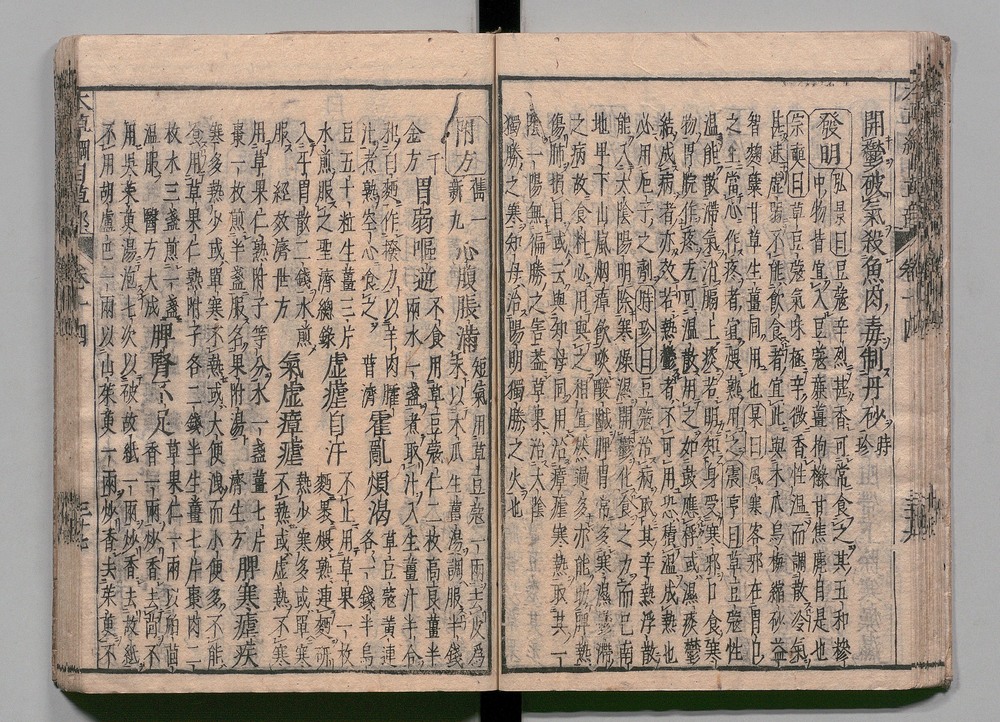 開鬱破氣殺魚肉毒制丹砂時珍
發明弘景曰豆蔻辛烈甚香可常食之其五和糝
中物皆宜人豆蔻廉薑枸櫞甘焦麂目是也
宗奭曰草豆蔻氣味極辛微香性温而調散冷氣
甚速虛弱不能飲食者宜此與木瓜烏梅縮砂益
智麴糵甘草生薑同用也杲曰風寒客邪在胃口
之上當心作疼者宜煨熟用之震亨曰草豆蔻性
温能散滯氣消膈上痰若明知身受寒邪口食寒
物胃脘作疼方可温散用之如鼓應桴或濕痰鬱
結成病者亦效若熱鬱者不可用恐積温成熱也
必用巵子之劑時珍曰豆蔻治病取其辛熱浮散
能入太陰陽明除寒燥濕開鬱化食之力而已南
地卑下山嵐烟瘴飲啖酸鹹脾胃常多寒濕鬱滯
之病故食料必用與之相宜然過多亦能助脾熱
傷肺損目或云與知母同用治瘴瘧寒熱取其一
陰一陽無偏勝之害蓋草果治太陰
獨勝之寒知母治陽明獨勝之火也
附方舊一新九心腹脹滿短氣用草豆蔻一兩去皮爲
末以木瓜生薑湯調服半錢千
金方胃弱嘔逆不食用草豆蔻仁二枚高良薑半
兩水一盞煮取汁入生薑汁半合
和白麪作撥刀以羊肉臛
汁煮熟空心食之普濟霍亂煩渴草豆蔻黄連
各一錢半烏
豆五十粒生薑三片
水煎服之聖濟總録虛瘧自汗不止用草果一枚
麪裹煨熟連麪研
入平胃散二錢水煎
服經效濟世方氣虛瘴瘧不熱或虛熱不寒
用草果仁熟附子等分水一盞薑七片
棗一枚煎半盞服名果附湯濟生方脾寒瘧疾
寒多熱少或單寒不熱或大便洩而小便多不能
食用草果仁熟附子各二錢半生薑七片棗肉二
枚水三盞煎一盞
温服醫方大成脾腎不足草果仁一兩以舶茴
香一兩炒香去茴不
用吳茱萸湯泡七次以破故紙一兩炒香去故紙
不用胡盧巴一兩以山茱萸一兩炒香去茱萸不